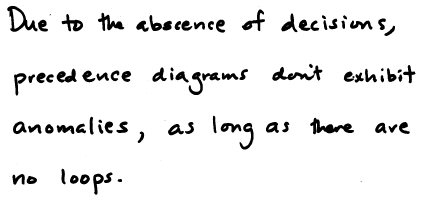 Due to the abscence of decisions,
precedence diagrams don't exhibit
anomalies, as long as there are
no loops.